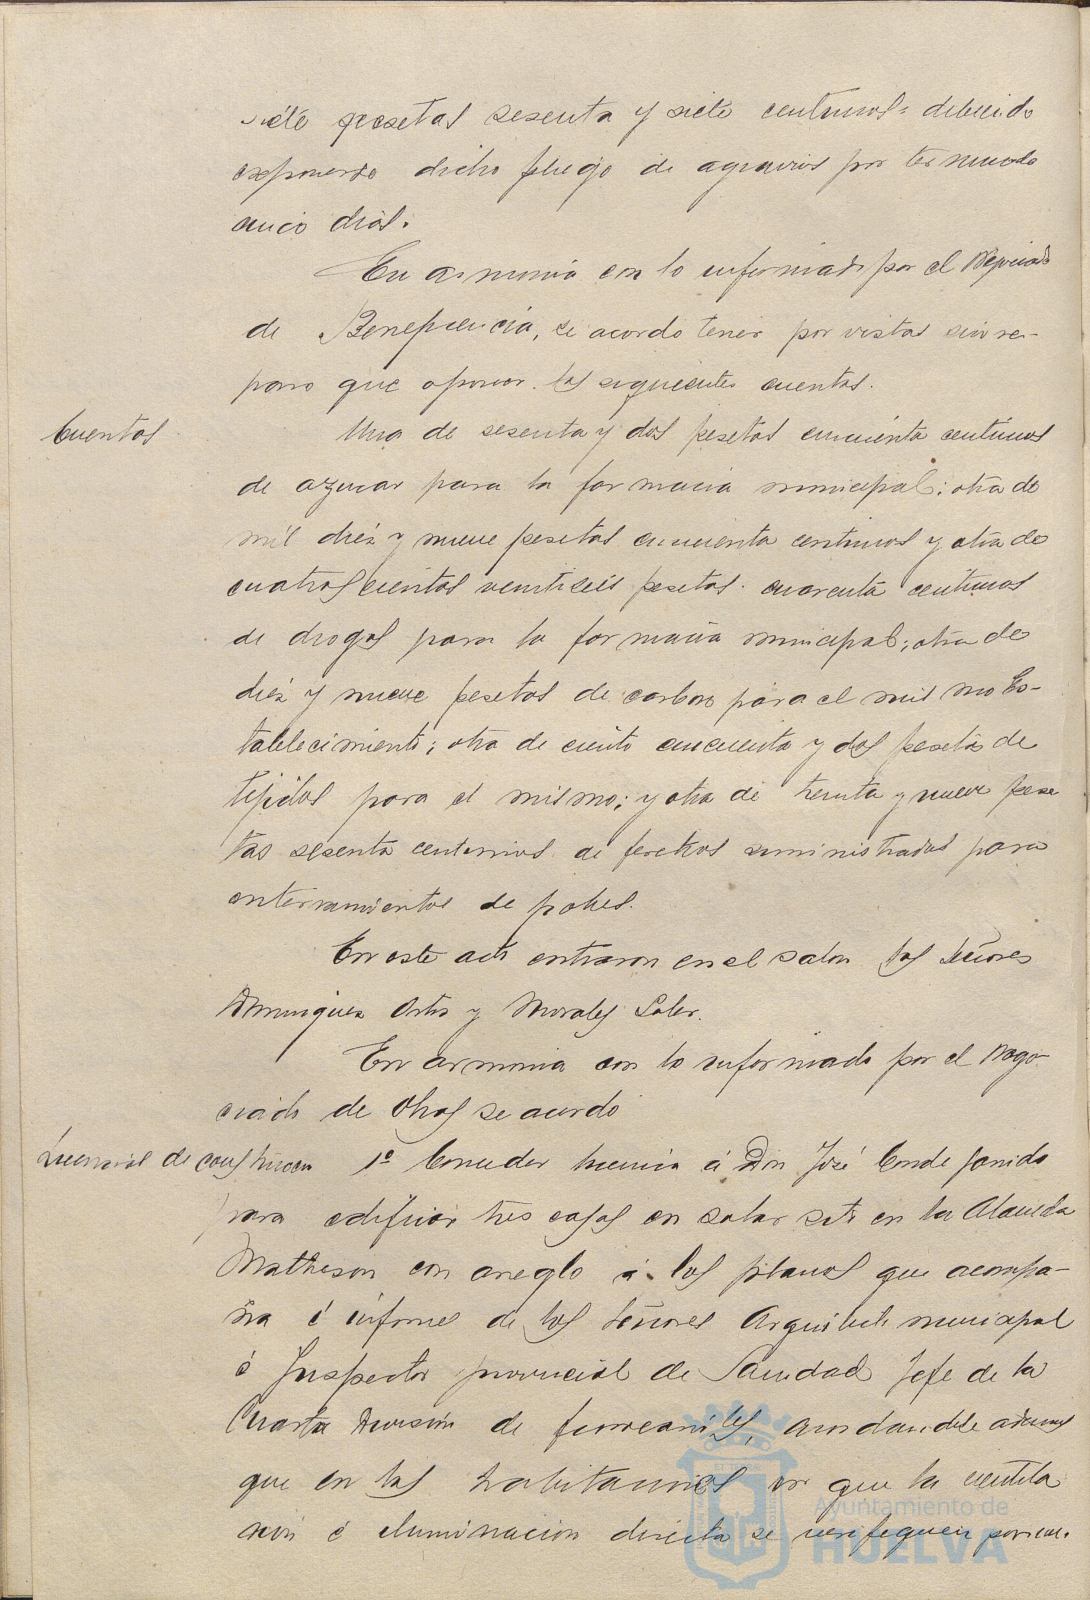 siete pesetas sesenta y siete centimos: debiendo
exponerse dicho pliego de agravios por termino de
cinco dias.
En armonia con lo informado por el Negociado
de Beneficencia, se acordo tener por vistas sin re-
paro que oponer las siguientes cuentas.
Cuentas
Una de sesenta y dos pesetas cincuenta centimos
de azucar para la farmacia municipal; otra de
mil diez y nueve pesetas cincuenta centimos y otra de
cuatroscientas veintiseis pesetas cuarenta centimos
de drogas para la farmacia municipal; otra de
diez y nueve pesetas de carbon para el mismo Es-
tablecimiento; otra de ciento cincuenta y dos pesetas de
tejidos para el mismo; y otra de treinta y nueve pese
tas sesenta centimos de feretros suministrados para
enterramientos de pobres.
En este acto entraron en el salon los Señores
Dominguez Ortiz y Morales Soler.
En armonia con lo informado por el Nego-
ciado de Obras se acordo
Licencias de construccion
1º Conceder licencia á Don José Conde Garrido
para edificar tres casas en solar sito en la Alameda
Matheson con areglo á los planos que acompa-
ña é informes de los Señores Arquitecto municipal
é Inspector provincial de Sanidad Jefe de la
Cuarta Division de ferrocarriles, acordandose ademas
que en las habitaciones en que la ventila
cion é iluminacion directa se verifiquen por cu-
Ayuntamiento de
HUELVA